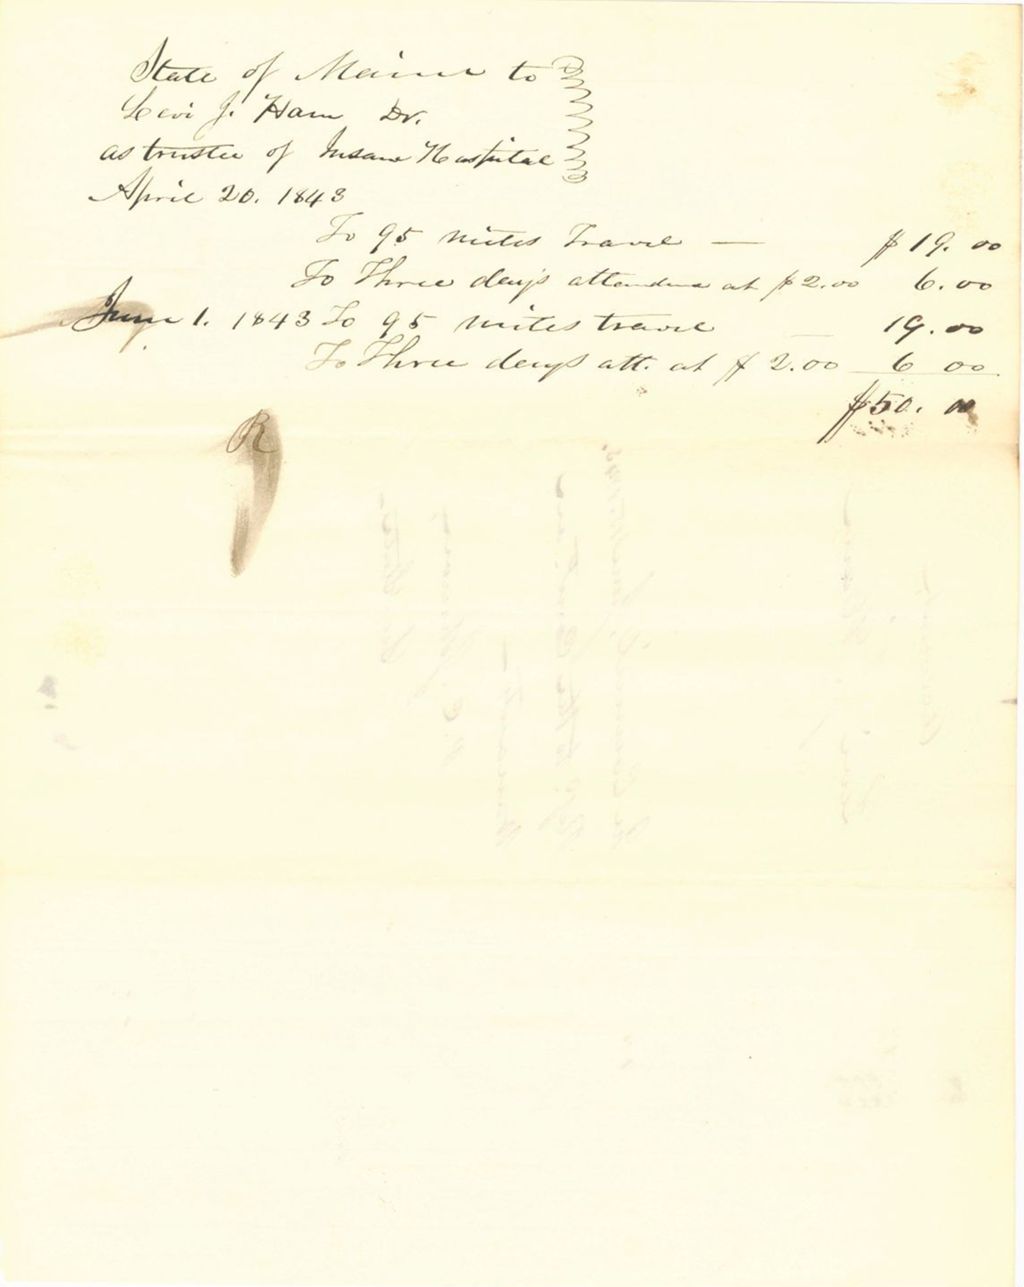 State of Maine to
Levi J. Ham Dr.
as trustee of Insane Hospital
April 20. 1843
To 95 miles Travel — $19.00
To Three days attendance at $2.00 6.00
June 1. 1843 To 95 miles travel — 19.00
To Three days att. at $2.00 6 00
$50.00
R